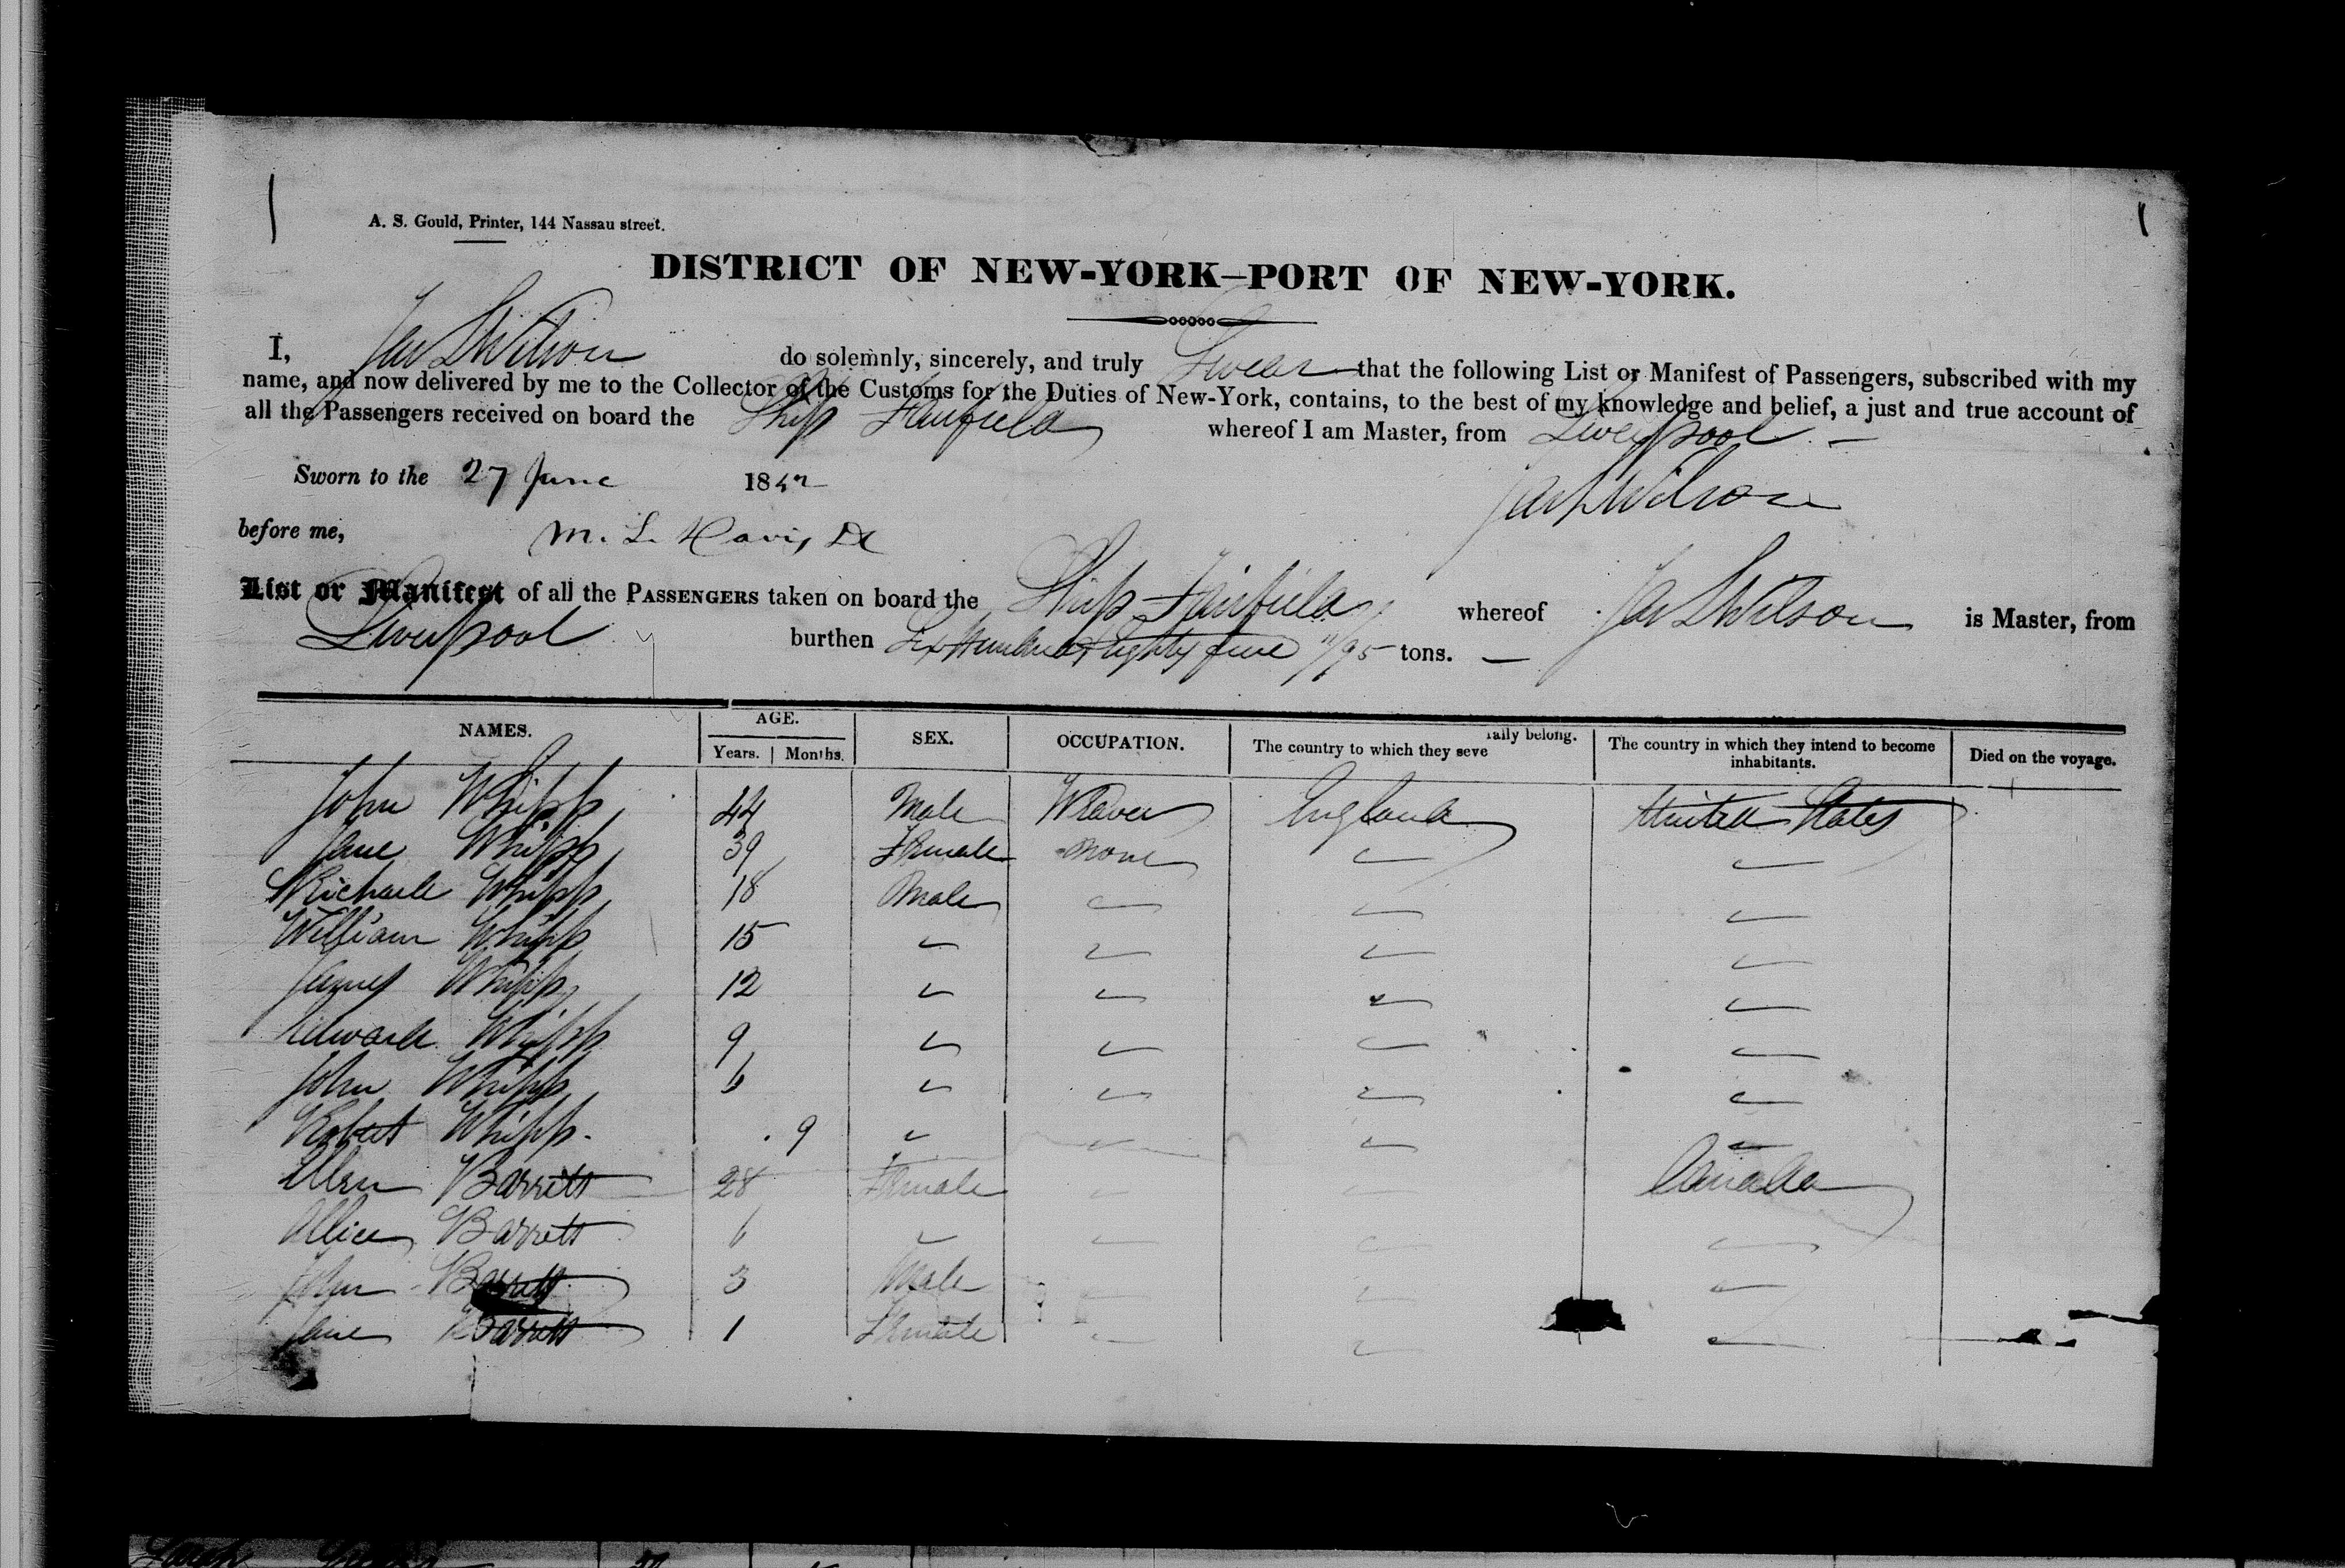 A. S. Gould, Printer, 144 Nassau street.
DISTRICT OF NEW-YORK—PORT OF NEW-YORK.
I, Jas L Wilson do solemnly, sincerely, and truly Swear that the following List or Manifest of Passengers, subscribed with my
name, and now delivered by me to the Collector of the Customs for the Duties of New-York, contains, to the best of my knowledge and belief, a just and true account of
all the Passengers received on board the Ship Fairfield whereof I am Master, from Liverpool
Sworn to the 27 June 1842
Jas L Wilson
before me, M. L. Davis
List or Manifest of all the PASSENGERS taken on board the Ship Fairfield whereof Jas L Wilson is Master, from
Liverpool burthen Six Hundred & Eighty five /95 tons.
NAMES. AGE. Years. Months. SEX. OCCUPATION. The country to which they severally belong. The country in which they intend to become inhabitants. Died on the voyage.
John Whipp 44 Male Weaver England United States
Jane Whipp 39 Female None
Richard Whipp 18 Male
William Whipp 15
James Whipp 12
Edward Whipp 9
John Whipp 6
Robert Whipp 9
Ellen Barrett 28 Female Canada
Allice Barrett 6
John Barrett 3 Male
Jane Barrett 1 Female